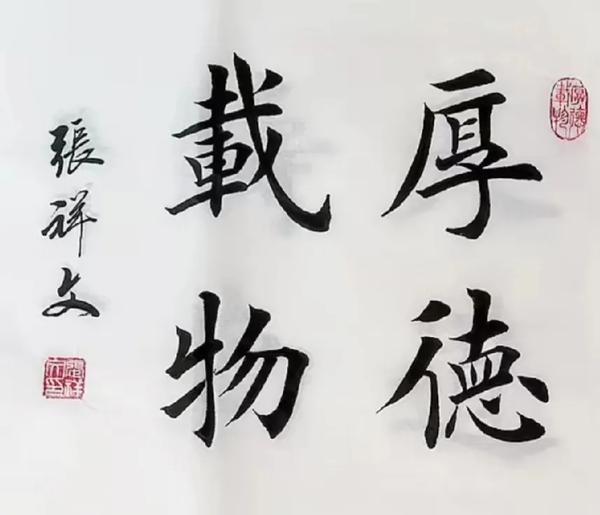 厚德
載物
張祥文